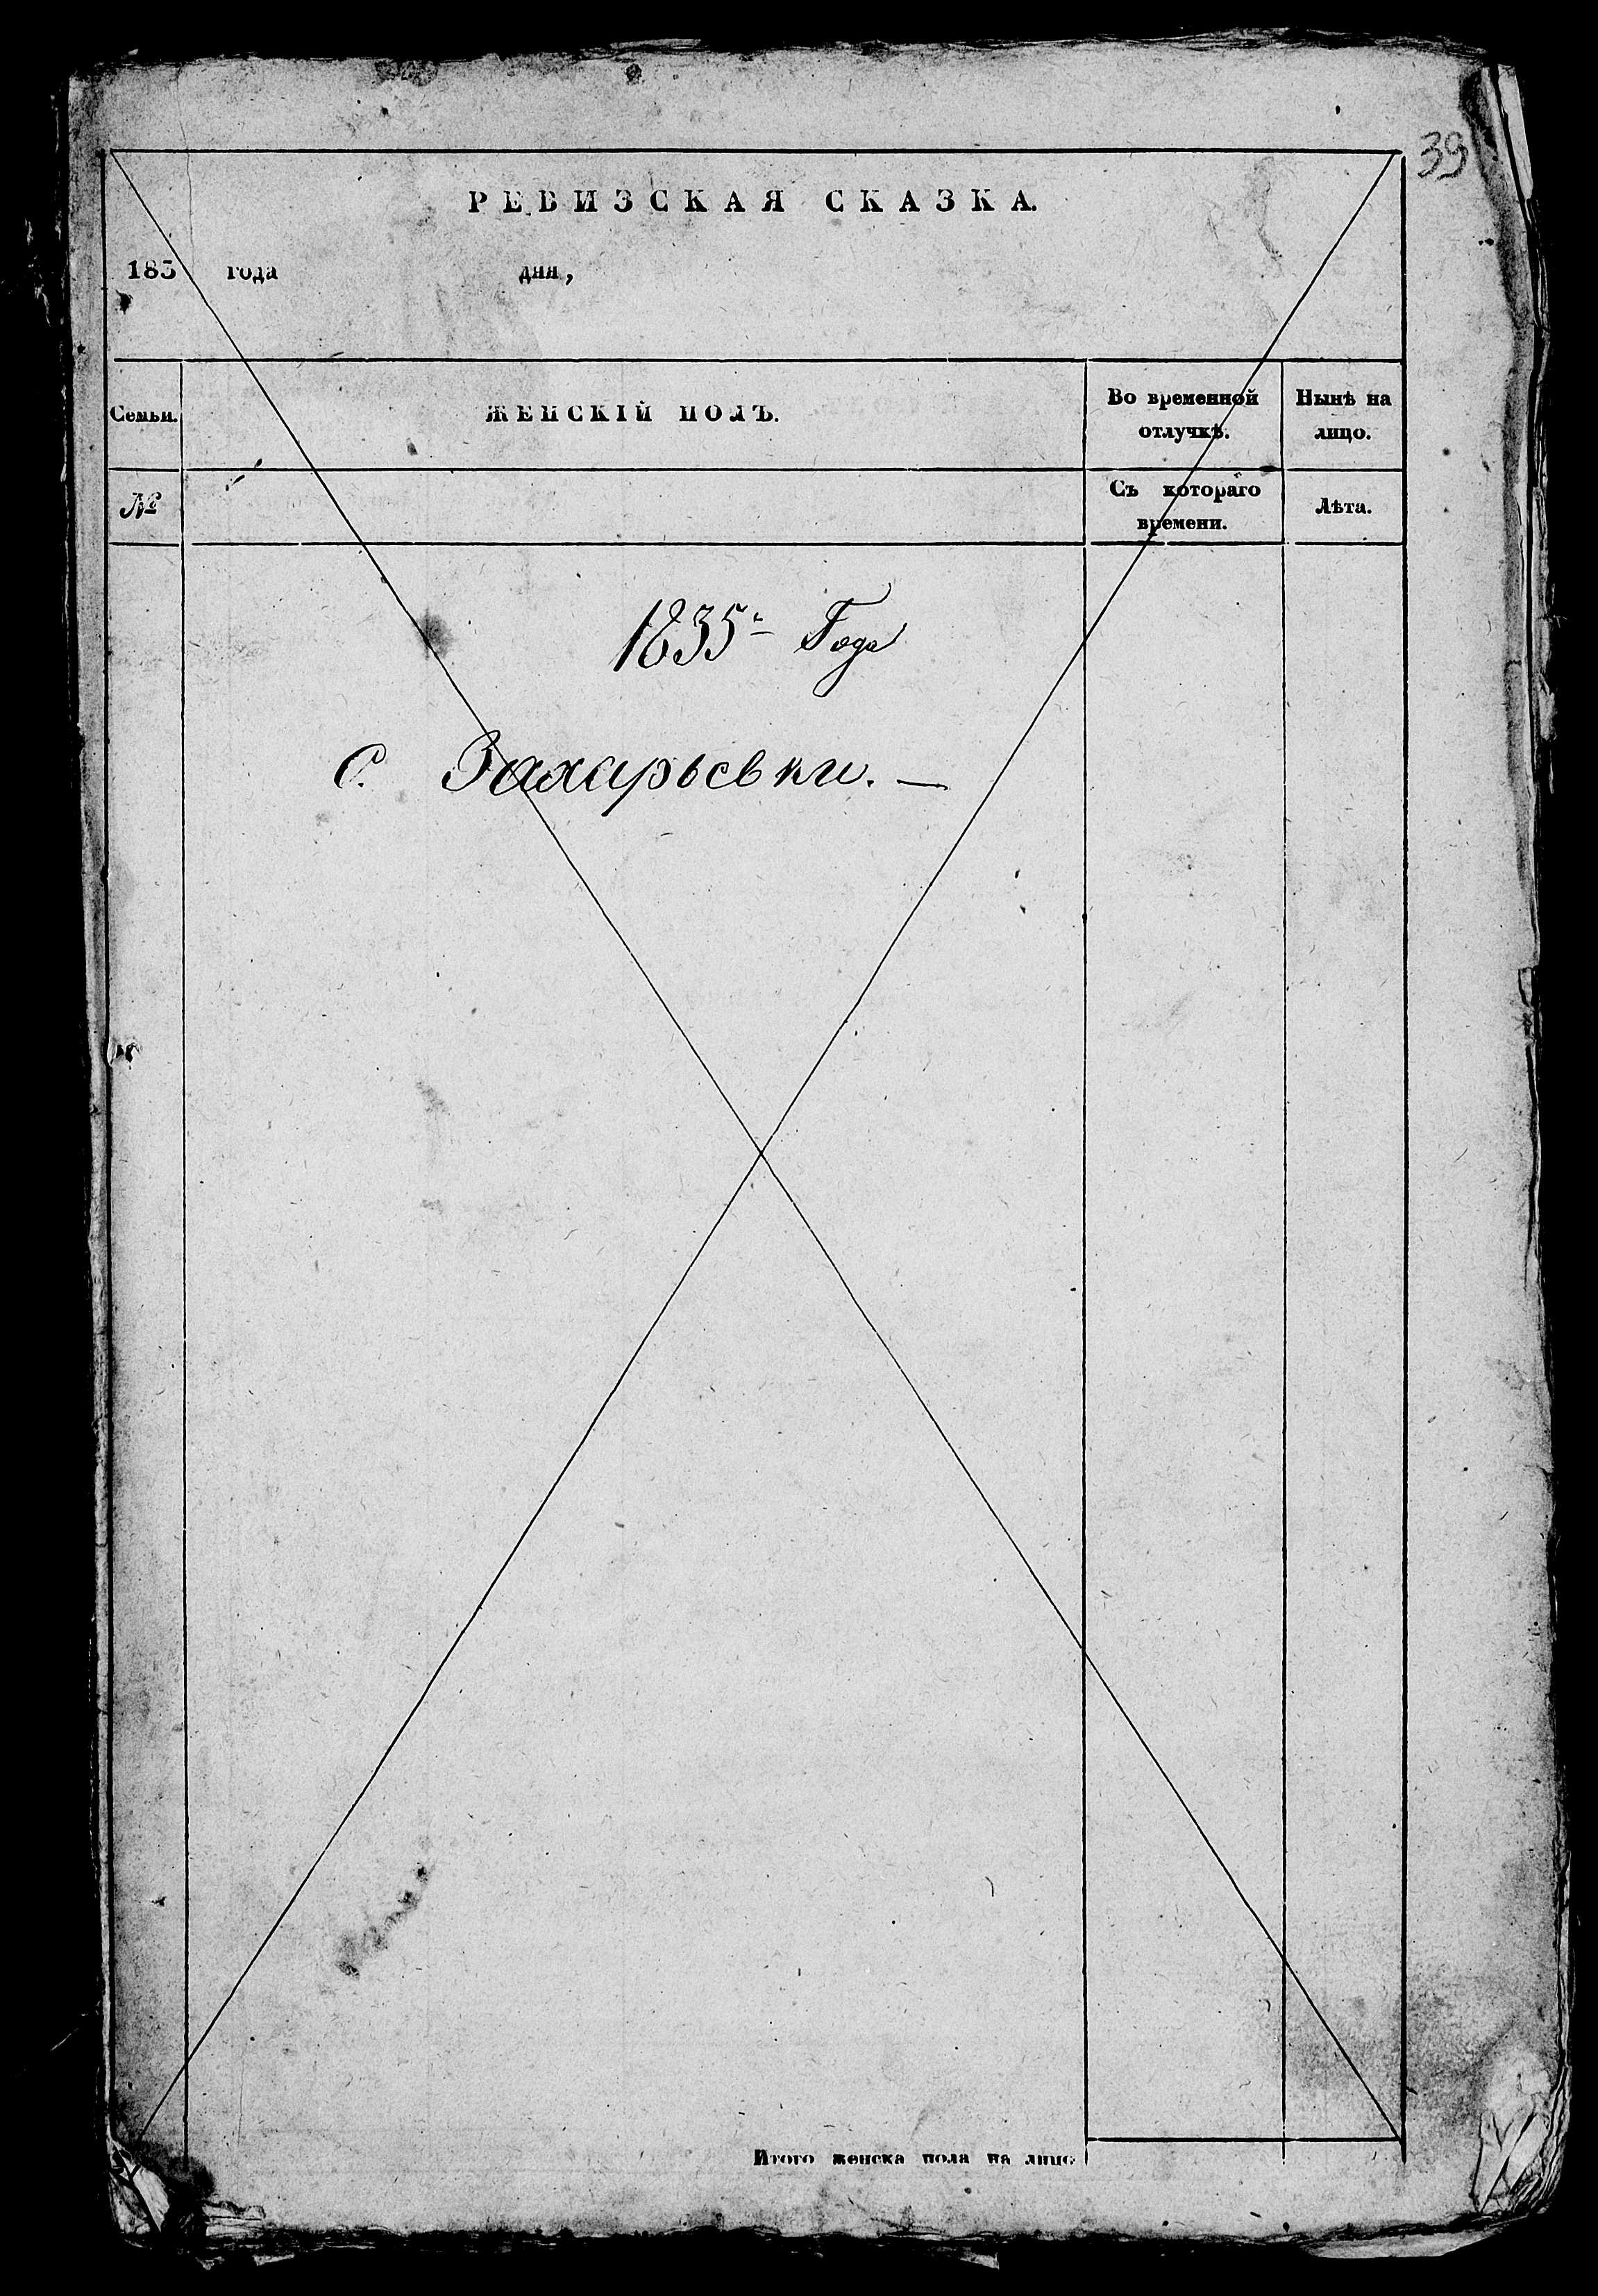 39
РЕВИЗСКАЯ СКАЗКА.
183 года дня,
Семьи.
ЖЕНСКІЙ ПОЛЪ.
Во временной
отлучкѣ.
Нынѣ на
лицо.
№
Съ котораго
времени.
Лѣта.
1835г Года
С. Захарьевки. —
Итого женска пола на лицо